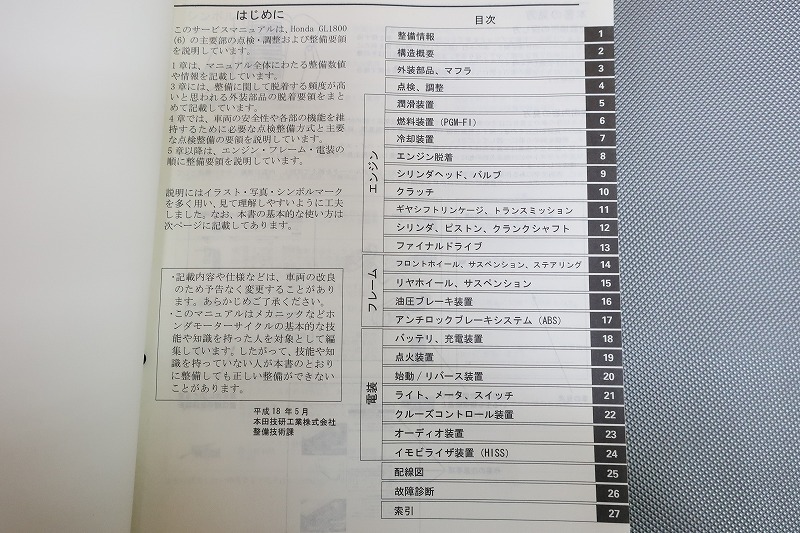 はじめに
このサービスマニュアルは、Honda GL1800
(6) の主要部の点検・調整および整備要領
を説明しています。
1章は、マニュアル全体にわたる整備数値
や情報を記載しています。
3章には、整備に関して脱着する頻度が高
いと思われる外装部品の脱着要領をまと
めて記載しています。
4章では、車両の安全性や各部の機能を維
持するために必要な点検整備方式と主要
な点検整備の要領を説明しています。
5章以降は、エンジン・フレーム・電装の
順に整備要領を説明しています。
説明にはイラスト・写真・シンボルマーク
を多く用い、見て理解しやすいように工夫
しました。なお、本書の基本的な使い方は
次ページに記載してあります。
・記載内容や仕様などは、車両の改良
のため予告なく変更することがあり
ます。あらかじめご了承ください。
・このマニュアルはメカニックなどホ
ンダモーターサイクルの基本的な技
能や知識を持った人を対象として編
集しています。したがって、技能や知
識を持っていない人が本書のとおり
に整備しても正しい整備ができない
ことがあります。
平成18年5月
本田技研工業株式会社
整備技術課
目次
整備情報 1
構造概要 2
外装部品、マフラ 3
点検、調整 4
エンジン
潤滑装置 5
燃料装置 (PGM-FI) 6
冷却装置 7
エンジン脱着 8
シリンダヘッド、バルブ 9
クラッチ 10
ギヤシフトリンケージ、トランスミッション 11
シリンダ、ピストン、クランクシャフト 12
ファイナルドライブ 13
フレーム
フロントホイール、サスペンション、ステアリング 14
リヤホイール、サスペンション 15
油圧ブレーキ装置 16
アンチロックブレーキシステム (ABS) 17
電装
バッテリ、充電装置 18
点火装置 19
始動/リバース装置 20
ライト、メータ、スイッチ 21
クルーズコントロール装置 22
オーディオ装置 23
イモビライザ装置 (HISS) 24
配線図 25
故障診断 26
索引 27